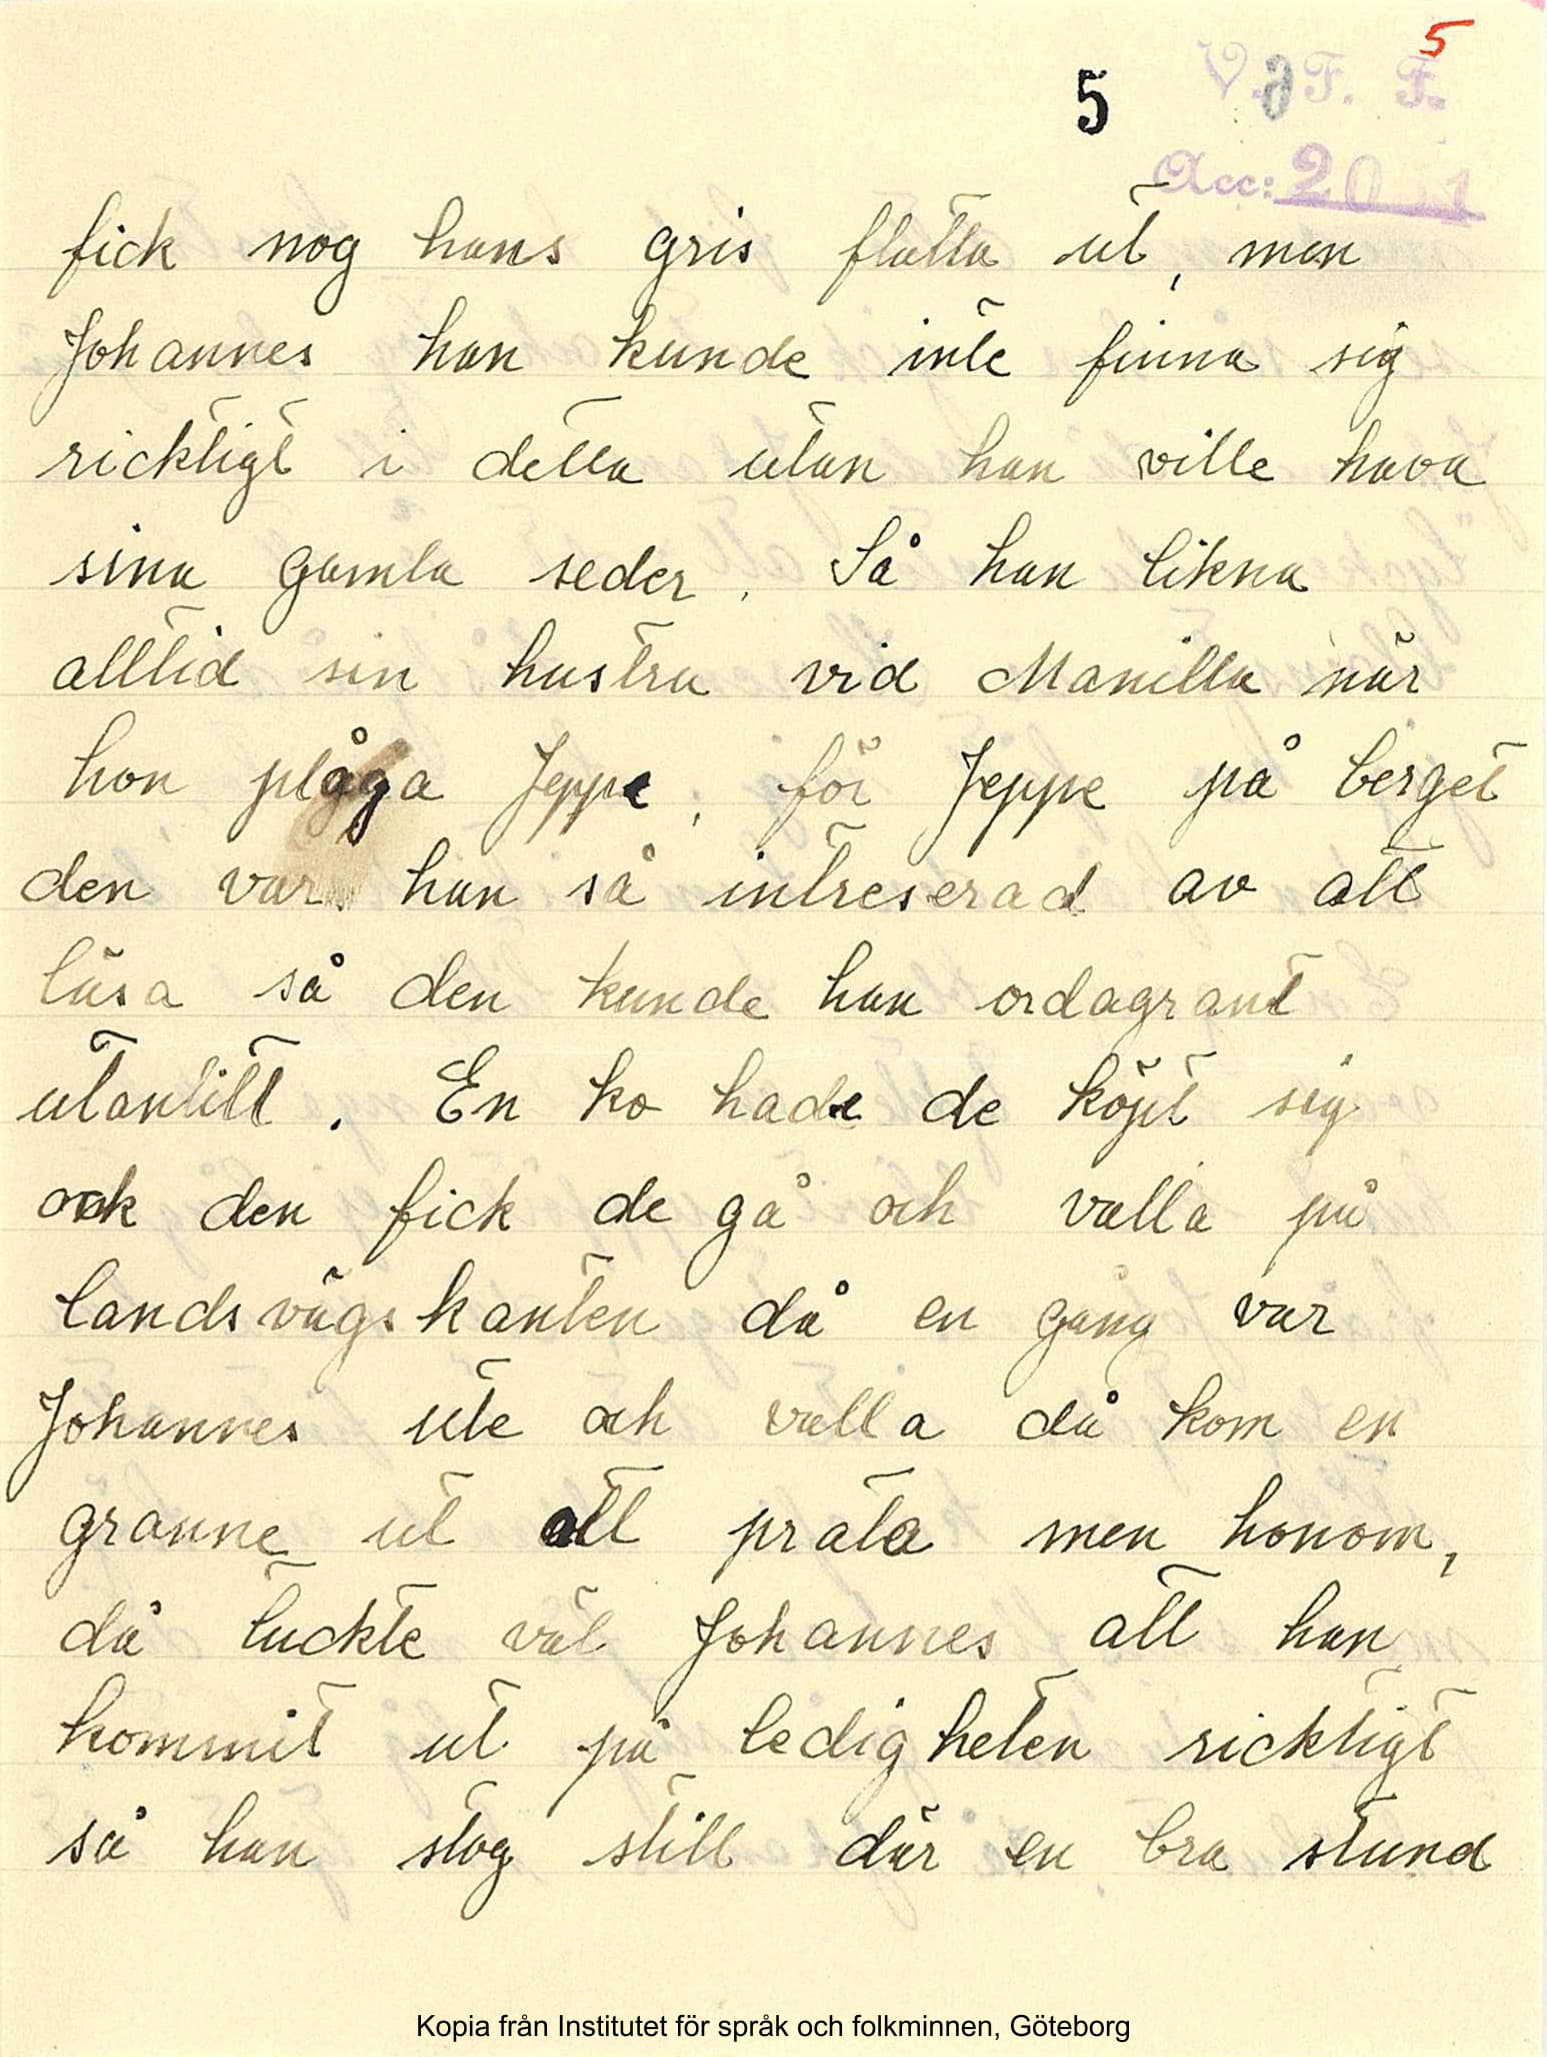 5
5
V. F. F.
Acc: 2051
fick nog hans gris flötta ut, men
Johannes han kunde inte finna sig
ricktigt i detta utan han ville hava
sina gamla seder. Så han likna
alltid sin hustru vid Manilla när
hon plåga Jeppe, för Jeppe på berget
den var han så intreserad av att
läsa så den kunde han ordagrant
utantill. En ko hade de köpt sig
ock den fick de gå och valla på
landsvägskanten då en gång var
Johannes ute och valla då kom en
granne ut att prata men honom,
då tuckte väl Johannes att han
kommit ut på ledigheten ricktigt
så han stog still där en bra stund
Kopia från Institutet för språk och folkminnen, Göteborg